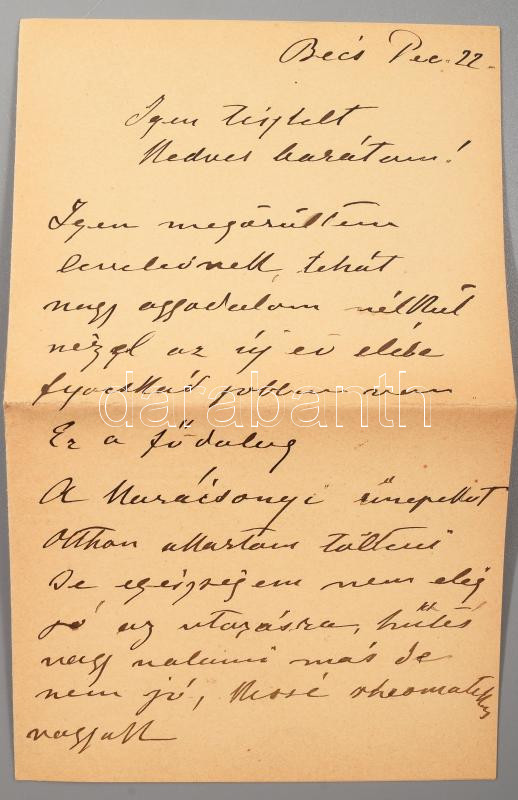 Bécs Dec. 22.
Igen tisztelt
Kedves barátom!
Igen megörültem
levelének, tehát
nagy aggodalom nélkül
nézzel az új év elébe
jobban van
Ez a fődolog
A Karácsonyi ünnepeket
otthon akartam tölteni
de egészségem nem elég
jó az utazásra, hűtés
vagy valami más de
nem jó, kissé rheomatikus
vagyok
darabanth